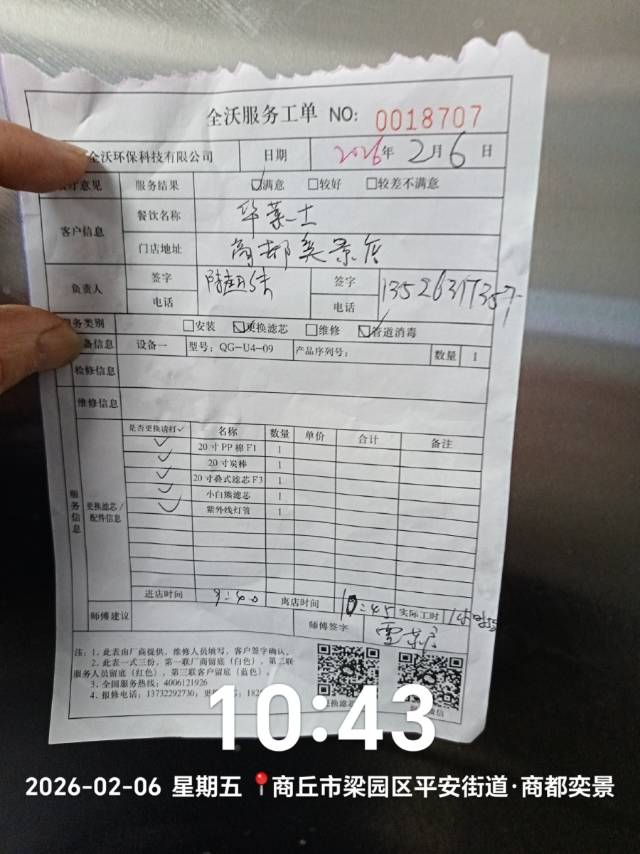 全沃服务工单 NO: 0018707
全沃环保科技有限公司 日期 2026年 2月 6日
意见 服务结果 ☑满意 □较好 □较差不满意
客户信息 餐饮名称 华莱士
门店地址 商都奕景店
负责人 签字 签字
电话 电话 13526317357
服务类别 □安装 ☑更换滤芯 □维修 ☑管道消毒
备信息 设备一 型号: QG-U4-09 产品序列号: 数量 1
检修信息
维修信息
服务信息 更换滤芯/配件信息 是否更换请打✓ 名称 数量 单价 合计 备注
✓ 20寸PP棉F1 1
✓ 20寸炭棒 1
✓ 20寸叠式滤芯F3 1
✓ 小白熊滤芯 1
✓ 紫外线灯管 1
进店时间 9:40 离店时间 10:45 实际工时
师傅建议 师傅签字
注: 1. 此表由厂商提供, 维修人员填写, 客户签字确认。
2. 此表一式三份, 第一联厂商留底(白色), 第二联
服务人员留底(红色), 第三联客户留底(蓝色)。
3. 全国服务热线: 4006121926
4. 报修电话: 13732292730, 更
更换滤芯
10:43
2026-02-06 星期五 📍商丘市梁园区平安街道·商都奕景